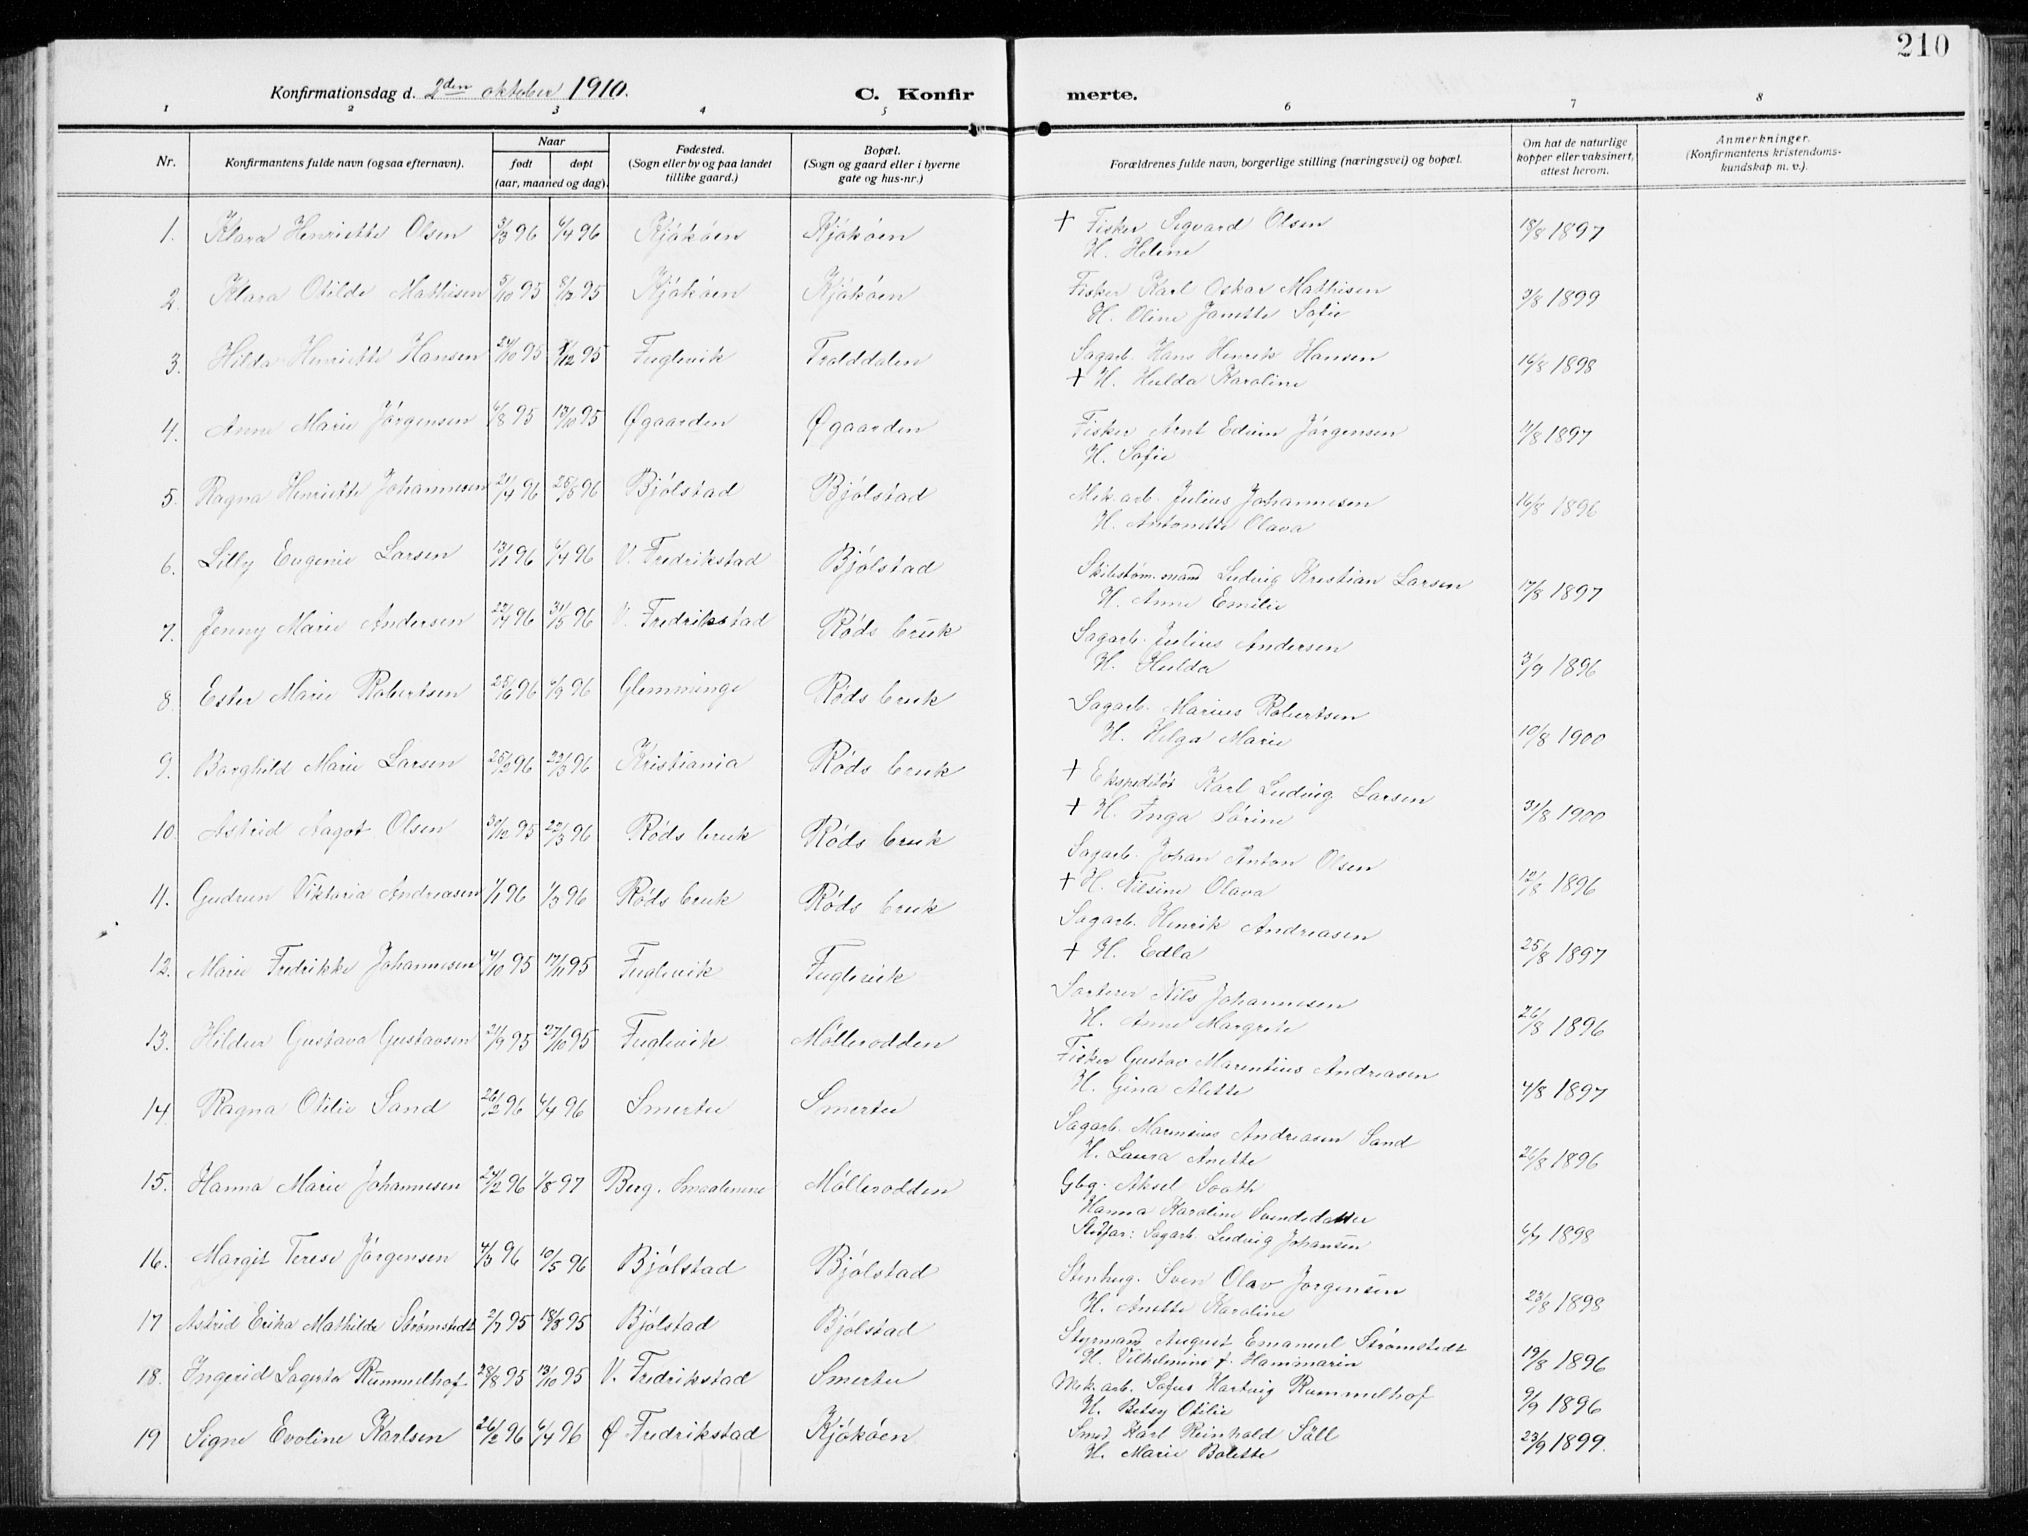 210
Konfirmationsdag d. 2den oktober 1910.
C. Konfirmerte.
1 2 3 4 5 6 7 8
Nr.
Konfirmantens fulde navn (ogsaa efternavn).
Naar
født døpt
(aar, maaned og dag).
Fødested.
(Sogn eller by og paa landet
tillike gaard.)
Bopæl.
(Sogn og gaard eller i byerne
gate og hus-nr.)
Forældrenes fulde navn, borgerlige stilling (næringsvei) og bopæl.
Om hat de naturlige
kopper eller vaksinert,
attest herom.
Anmerkninger.
(Konfirmantens kristendoms-
kundskap m. v.).
1. Klara Henriette Olsen 3/3 96 6/4 96 Kjøkøen Kjøkøen + Fisker Sigvard Olsen 18/8 1897
H. Helene
2. Klara Otilde Mathisen 5/10 95 8/12 95 Kjøkøen Kjøkøen Fisker Karl Oskar Mathisen 3/8 1899
H. Oline Janette Sofie
3. Hilda Henriette Hansen 24/10 95 /12 95 Fuglevik Tralddalen Sagarb. Hans Henrik Hansen 16/8 1898
+ H. Hulda Karoline
4. Anne Marie Jørgensen 6/8 95 13/10 95 Øgaarden Øgaarden Fisker Arnt Edvin Jørgensen 11/8 1897
H. Sofie
5. Ragna Henriette Johannesen 21/4 96 25/5 96 Bjølstad Bjølstad Mek. arb. Julius Johannesen 16/8 1896
H. Antonette Olava
6. Lilly Eugenie Larsen 13/1 96 6/4 96 V. Fredrikstad Bjølstad Skibstøm.mand Ludvig Kristian Larsen 17/8 1897
H. Anne Emilie
7. Jenny Marie Andersen 22/4 96 31/5 96 V. Fredrikstad Røds bruk Sagarb. Julius Andersen 3/9 1896
H. Hulda
8. Ester Marie Robertsen 25/6 96 6/9 96 Glemminge Røds bruk Sagarb. Marius Robertsen 10/8 1900
H. Helga Marie
9. Borghild Marie Larsen 25/2 96 22/3 96 Kristiania Røds bruk + Ekspeditør Karl Ludvig Larsen 31/8 1900
+ H. Inga Sørine
10. Astrid Aagot Olsen 30/12 95 22/3 96 Røds bruk Røds bruk Sagarb. Johan Anton Olsen 12/8 1896
+ H. Nilsine Olava
11. Gudrun Viktoria Andreasen 1/1 96 1/3 96 Røds bruk Røds bruk Sagarb. Henrik Andreasen 25/8 1897
+ H. Edla
12. Marie Fredrikke Johannesen 4/10 95 17/11 95 Fuglevik Fuglevik Sorterer Nils Johannesen 26/8 1896
H. Anne Margrete
13. Hildur Gustava Gustavsen 21/9 95 27/10 95 Fuglevik Møllerodden Fisker Gustav Marentius Andreasen 4/8 1897
H. Gina Alette
14. Ragna Otilie Sand 26/2 96 6/4 96 Smertu Smertu Sagarb. Marensius Andreasen Sand 26/8 1896
H. Laura Anette
15. Hanna Marie Johannesen 24/12 96 1/8 97 Berg. Smaalenene Møllerodden Gbg. Aksel Sooth
Hanna Karoline Svendsdatter
Stedfar: Sagarb. Ludvig Johansen 6/7 1898
16. Margit Terese Jørgensen 4/3 96 10/5 96 Bjølstad Bjølstad Stenhug. Sven Olav Jørgensen 23/8 1898
H. Anette Karoline
17 Astrid Erika Mathilde Strømstedt 2/7 95 18/8 95 Bjølstad Bjølstad Styrmand August Emanuel Strømstedt 19/8 1896
H. Vilhelmine f. Hammarin
18. Ingerid Lagerta Rummelhof 28/8 95 13/10 95 V. Fredrikstad Smertu Mek. arb. Sofus Hartvig Rummelhof 9/9 1896
H. Betsy Otilie
19 Signe Evoline Karlsen 26/2 96 6/4 96 Ø Fredrikstad Kjøkøen Smed Karl Reinhold Säll 23/9 1899.
H. Marie Bolette